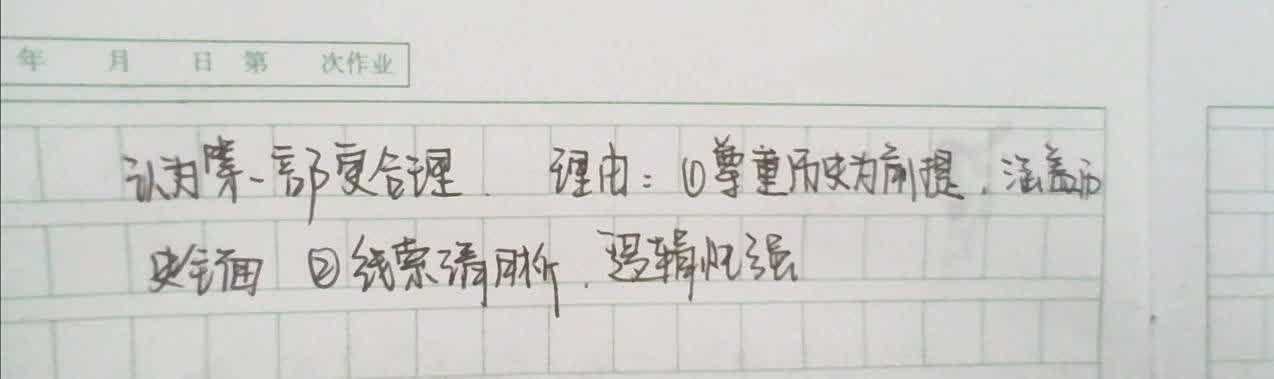 年 月 日 第 次作业
认为第一部更合理. 理由:①尊重历史为前提,涵盖历
史全面 ②线索清晰,逻辑性强